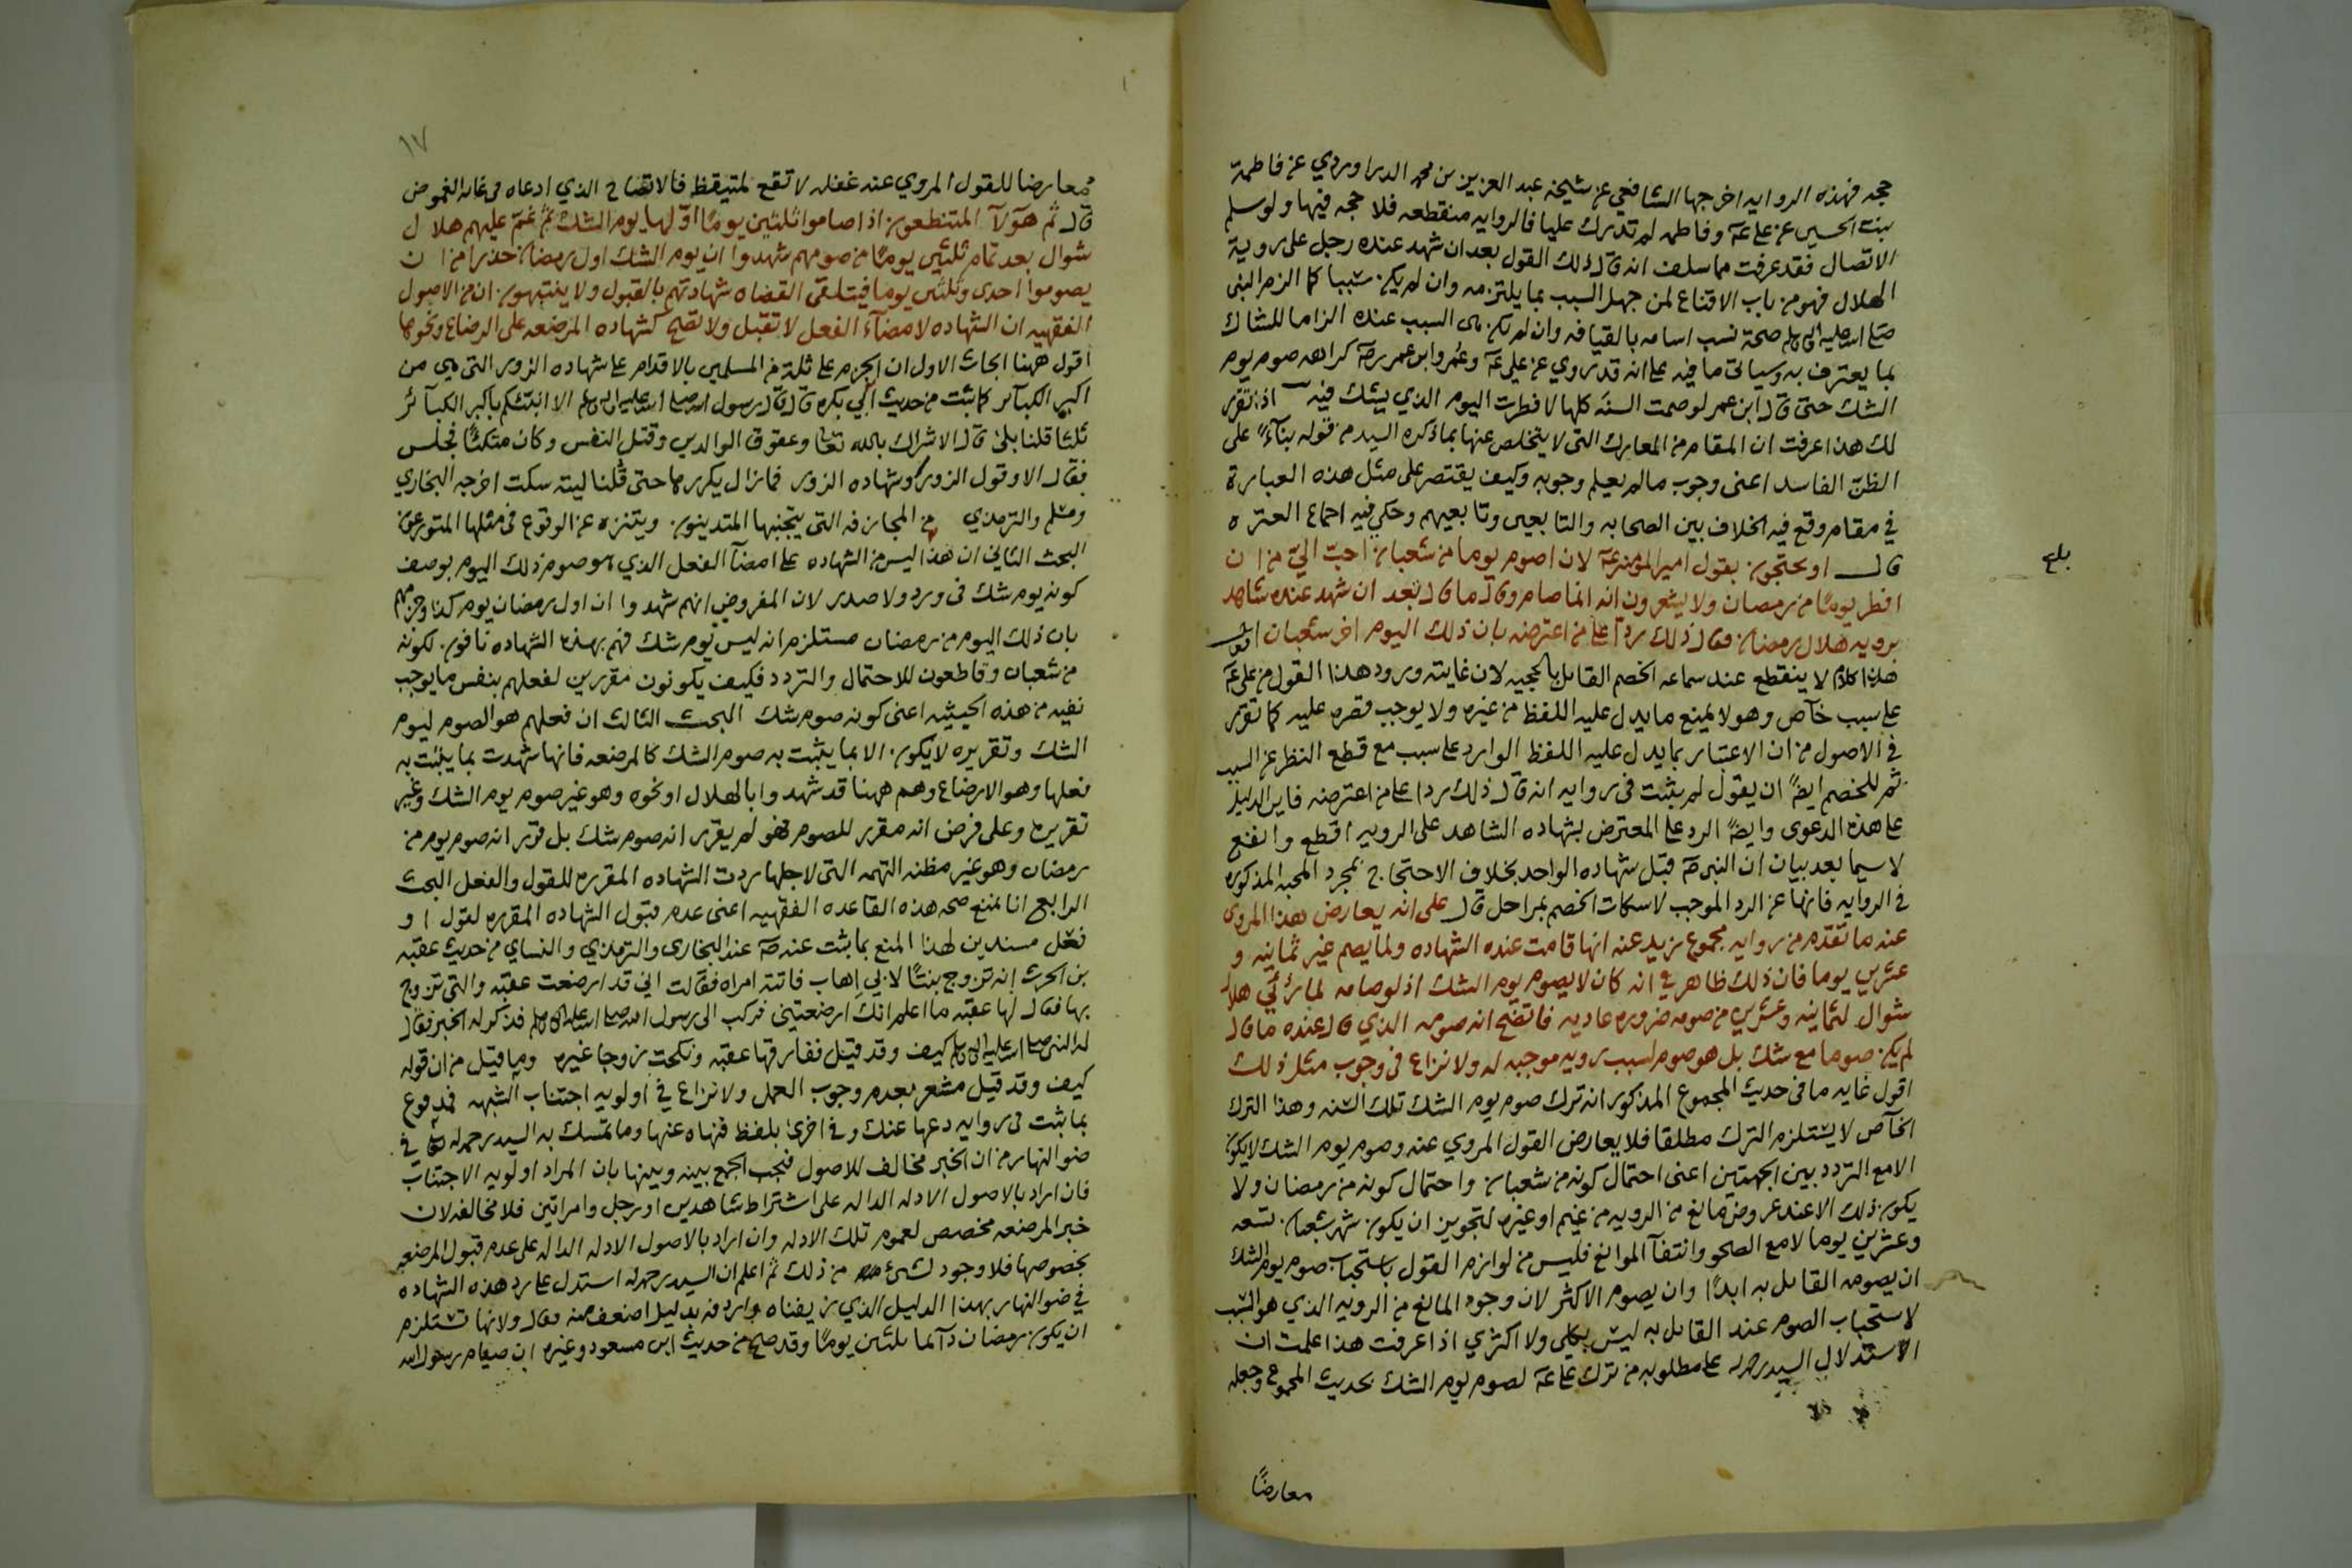 حجه فهذه الروايه اخرجها الشافعي عن شيخه عبد العزيز بن محمد الدراوردي عن فاطمة
بنت الحسين عن علي عه وفاطمه لم تدرك عليا فالروايه منقطعه فلا حجه فيها ولو سلم
الاتصال فقد عرفت مما سلف انه قال ذلك القول بعد ان شهد عنده رجل على روية
الهلال فهو من باب الاقناع لمن جهل السبب بما يلتزمه وان لم يكن سببا كما الزم النبى
صلى الله عليه واله وسلم صحة نسب اسامه بالقيافه وان لم تكن هى السبب عنده الزاما للشاك
بما يعترف به وسياتى ما فيه على انه قد روي عن علي عه وعمر وابن عمر رضه كراهه صوم يوم
الشك حتى قال ابن عمر لو صمت السنه كلها لافطرت اليوم الذي يشك فيه اذا تقرر
لك هذا عرفت ان المقام من المعارك التى لا يتخلص عنها بما ذكره السيد من قوله بنآءً على
الظن الفاسد اعنى وجوب ما لم يعلم وجوبه وكيف يقتصر على مثل هذه العبارة
في مقام وقع فيه الخلاف بين الصحابه والتابعين وتابعيهم وحكي فيه اجماع العتره
قال او يحتجون بقول امير المؤمنين عه لان اصوم يوما من شعبان احبّ اليّ من ان
افطر يومًا من رمضان ولا يشعرون انه انما صام وقال ما قال بعد ان شهد عنده شاهد
برويه هلال رمضان فقال ذلك ردّا على من اعترضه بان ذلك اليوم اخر شعبان اقول
هذا كلام لا ينقطع عند سماعه الخصم القايل بالحجيه لان غايته ورود هذا القول من علي عه
على سبب خآص وهو لا يمنع ما يدل عليه اللفظ من غيره ولا يوجب قصره عليه كما تقرر
في الاصول من ان الاعتبار بما يدل عليه اللفظ الوارد على سبب مع قطع النظر عن السبب
ثم للخصم ايضً ان يقول لم يثبت في روايه انه قال ذلك ردا على من اعترضه فاين الدليل
على هذه الدعوى وايضً الرد على المعترض بشهاده الشاهد على الرويه اقطع وانفع
لا سيما بعد بيان ان النبي صه قبل شهاده الواحد بخلاف الاحتجاج بمجرد المحبه المذكوره
في الروايه فانها عن الرد الموجب لاسكات الخصم بمراحل قال على انه يعارض هذا المروى
عنه ما تقدم من روايه مجموع زيد عنه انها قامت عنده الشهاده ولما يصم غير ثمانيه و
عشرين يوما فان ذلك ظاهر في انه كان لا يصوم يوم الشك اذ لو صامه لما رئي هلال
شوال لثمانيه وعشرين من صومه ضروره عاديه فاتضح انه صومه الذي قال عنده ما قال
لم يكن صوما مع شك بل هو صوم لسبب رويه موجبه له ولا نزاع فى وجوب مثل ذلك
اقول غايه ما فى حديث المجموع المذكور انه ترك صوم يوم الشك تلك السنه وهذا الترك
الخآص لا يستلزم الترك مطلقا فلا يعارض القول المروي عنه وصوم يوم الشك لا يكون
الا مع التردد بين الجهتين اعنى احتمال كونه من شعبان واحتمال كونه من رمضان ولا
يكون ذلك الا عند عروض مانع من الرويه من غيم او غيره لتجويز ان يكون شهر شعبان تسعه
وعشرين يوما لا مع الصحو وانتفآ الموانع فليس من لوازم القول باستحباب صوم يوم الشك
ان يصومه القايل به ابدًا وان يصوم الاكثر لان وجود المانع من الرويه الذي هو السبب
لاستحباب الصوم عند القايل به ليس بكلي ولا اكثري اذا عرفت هذا علمت ان
الاستدلال السيد رحمه له على مطلوبه من ترك علي عه لصوم يوم الشك بحديث المجموع وجعله
معارضًا
بلغ
١٧
معارضا للقول المروي عنه غفله لا تقع لمتيقظ فالاتضاح الذي ادعاه فى غايه الغموض
قال ثم هوٓلآ المتنطعون اذا صاموا ثلثين يومًا اوّلها يوم الشك ثم غمّ عليهم هلال
شوال بعد تمام ثلثين يومًا من صومهم شهدوا ان يوم الشك اول رمضان حذرا من ان
يصوموا احدى وثلثين يوما فيتلقى القضاه شهادتهم بالقبول ولا ينتبهون ان من الاصول
الفقهيه ان الشهاده لامضآء الفعل لا تقبل ولا تصح كشهاده المرضعه على الرضاع ونحوها
اقول ههنا ابحاث الاول ان الجزم على ثلة من المسلمين بالاقدام على شهاده الزور التى هي من
اكبر الكبآىر كما ثبت من حديث ابي بكره قال قال رسول الله صلى الله عليه واله وسلم الا انبئكم باكبر الكبآئر
ثلثا قلنا بلى قال الاشراك بالله تعا وعقوق الوالدين وقتل النفس وكان متكئًا فجلس
فقال الا وقول الزور وشهاده الزور فما زال يكررها حتى قلنا ليته سكت اخرجه البخاري
ومسلم والترمذي من المجازفه التى يتجنبها المتدينون ويتنزه عن الوقوع فى مثلها المتورعون
البحث الثاني ان هذا ليس من الشهاده على امضآ الفعل الذي هو صوم ذلك اليوم بوصف
كونه يوم شك فى ورد ولا صدر لان المفروض انهم شهدوا ان اول رمضان يوم كذا وجزمهم
بان ذلك اليوم من رمضان مستلزم انه ليس يوم شك فهم بهذه الشهاده نافون لكونه
من شعبان وقاطعون للاحتمال والتردد فكيف يكونون مقررين لفعلهم بنفس ما يوجب
نفيه من هذه الحيثيه اعنى كونه صوم شك البحث الثالث ان فعلهم هو الصوم ليوم
الشك وتقريره لا يكون الا بما يثبت به صوم الشك كالمرضعه فانها شهدت بما يثبت به
فعلها وهو الارضاع وهم ههنا قد شهدوا بالهلال او نحوه وهو غير صوم يوم الشك وغير
تقريره وعلى فرض انه مقرر للصوم فهو لم يقرر انه صوم شك بل قرر انه صوم يوم من
رمضان وهو غير مظنه التهمه التى لاجلها ردت الشهاده المقرره للقول والفعل البحث
الرابع انا نمنع صحه هذه القاعده الفقهيه اعنى عدم قبول الشهاده المقرره لقول او
فعل مسندين لهذا المنع بما ثبت عنه صه عند البخارى والترمذي والنساي من حديث عقبه
بن الحرث انه تزوج بنتًا لابي اهاب فاتته امراه فقالت اني قد ارضعت عقبه والتى تزوج
بها فقال لها عقبه ما اعلم انك ارضعتينى فركب الى رسول الله صلى الله عليه واله وسلم فذكر له الخبر فقال
له النبى صلى الله عليه واله وسلم كيف وقد قيل ففارقها عقبه ونكحت زوجا غيره وما قيل من ان قوله
كيف وقد قيل مشعر بعدم وجوب العمل ولا نزاع في اولويه اجتناب الشبهه فمدفوع
بما ثبت فى روايه دعها عنك وفى اخرى بلفظ فنهاه عنها وما تمسك به السيد رحمه له في
ضو النهار من ان الخبر مخالف للاصول فيجب الجمع بينه وبينها بان المراد اولويه الاجتناب
فان اراد بالاصول الادله الداله على اشتراط شاهدين او رجل وامراتين فلا مخالفه لان
خبر المرضعه مخصص لعموم تلك الادله وان اراد بالاصول الادله الداله على عدم قبول المرضعه
بخصوصها فلا وجود لشئ من ذلك ثم اعلم ان السيد رحمه له استدل على رد هذه الشهاده
في ضو النهار بهذا الدليل الذي زيفناه واردفه بدليل اضعف منه فقال ولانها تستلزم
ان يكون رمضان دآىما ثلثين يومًا وقد صح من حديث ابن مسعود وغيره ان صيام رسول الله